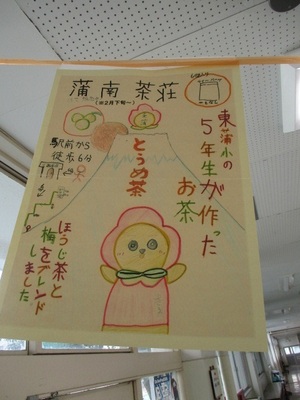 蒲南茶荘
(※2月下旬〜)
東蒲小の
5年生が作った
お茶
とうめ茶
駅前から
徒歩6分
ほうじ茶と
梅をブレンド
しました